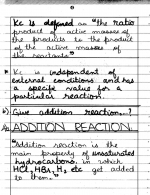 Kc is defined as "the ratio
product of active masses of
the products to the product
of the active masses of
the reactants."
Kc is independent of
external conditions and has
a specific value for a
particular reaction.
Give addition reaction...?
ADDITION REACTION:
"Addition reaction is the
main property of unsaturated
hydrocarbons in which
HCl, HBr, H₂ etc get added
to them."